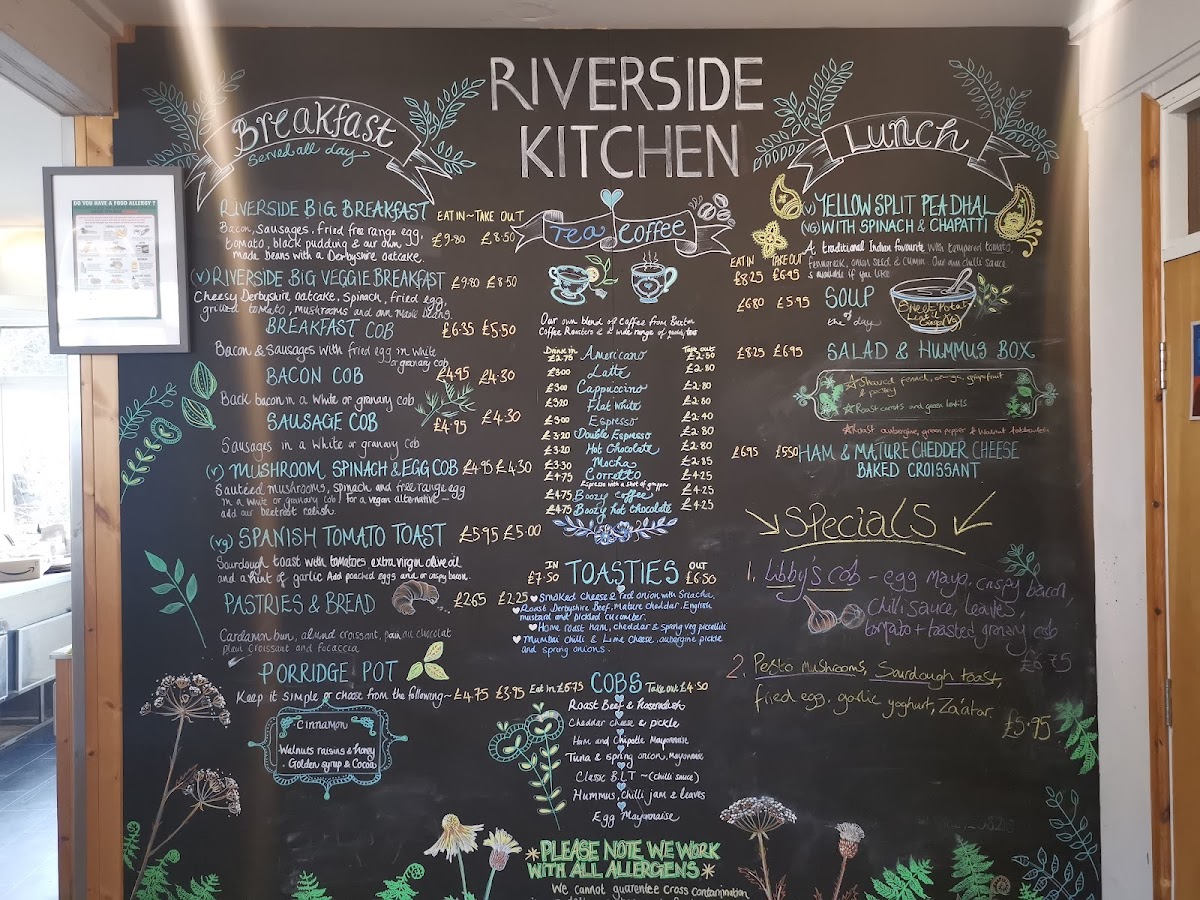 RIVERSIDE
KITCHEN
DO YOU HAVE A FOOD ALLERGY ?
Breakfast
Served all day
RIVERSIDE BIG BREAKFAST EAT IN ~ TAKE OUT
Bacon, Sausages, fried free range egg,
tomato, black pudding & our own £9.80 £8.50
made Beans with a Derbyshire oatcake.
(V) RIVERSIDE BIG VEGGIE BREAKFAST £9.80 £8.50
Cheesy Derbyshire oatcake, spinach, fried egg,
grilled tomato, mushrooms and own made beans.
BREAKFAST COB £6.35 £5.50
Bacon & Sausages with fried egg in white
or granary cob
BACON COB £4.95 £4.30
Back bacon in a white or granary cob
SAUSAGE COB £4.95 £4.30
Sausages in a white or granary cob
(V) MUSHROOM, SPINACH & EGG COB £4.95 £4.30
Sautéed mushrooms, spinach and free range egg
in a white or granary cob / For a vegan alternative -
add our beetroot relish
(vg) SPANISH TOMATO TOAST £5.95 £5.00
Sourdough toast with tomatoes extra virgin olive oil
and a hint of garlic Add poached eggs and or crispy bacon.
PASTRIES & BREAD £2.65 £2.25
Cardamon bun, almond croissant, pain au chocolat
plain croissant and focaccia
PORRIDGE POT
Keep it simple or choose from the following ~ £4.75 £3.95
Cinnamon
Walnuts raisins & honey
. Golden syrup & Cocoa
Tea Coffee
Our own blend of Coffee from Buxton
Coffee Roasters & a wide range of teas, too
Drink in Take out
£2.75 Americano £2.50
£3.00 Latte £2.80
£3.00 Cappuccino £2.80
£3.20 Flat White £2.80
£3.00 Espresso £2.40
£3.20 Double Espresso £2.80
£3.20 Hot Chocolate £2.80
£3.30 Mocha £2.85
£4.75 Corretto £4.25
Espresso with a shot of grappa
£4.75 Boozy coffee £4.25
£4.75 Boozy hot chocolate £4.25
IN TOASTIES OUT
£7.50 £6.50
Smoked cheese & red onion with Sriacha
Roast Derbyshire Beef, Mature cheddar, English
mustard and pickled cucumber.
Home roast ham, cheddar & spring veg piccalilli
Mumbai chilli & Lime cheese, aubergine pickle
and spring onions.
Eat in £5.75 COBS Take out £4.50
Roast Beef & Horseradish
Cheddar cheese & pickle
Ham and Chipotle Mayonnaise
Tuna & spring onion, Mayonnaise
Classic B.L.T ~ (chilli sauce)
Hummus, chilli jam & leaves
Egg Mayonnaise
*PLEASE NOTE WE WORK
WITH ALL ALLERGIENS*
We cannot guarentee cross contamination
Lunch
(V) YELLOW SPLIT PEA DHAL
(VG) WITH SPINACH & CHAPATTI
EAT IN TAKE OUT
£8.25 £6.95
A traditional Indian favourite with tempered tomato,
fenugreek, onion seed & cumin. Our own chilli sauce
is available if you like
£6.80 £5.95 SOUP
of the day
Sweet Potato
Lentil
£8.25 £6.95 SALAD & HUMMUS BOX
Shaved fennel, orange, grapefruit
& parsley
Roast carrots and green lentils
Roast aubergine, green pepper & walnut
£6.95 £5.50 HAM & MATURE CHEDDER CHEESE
BAKED CROISSANT
Specials
1. Libby's cob - egg mayo, crispy bacon,
chilli sauce, leaves,
tomato + toasted granary cob
£6.75
2. Pesto Mushrooms, Sourdough toast,
fried egg, garlic yoghurt, Za'atar.
£5.95